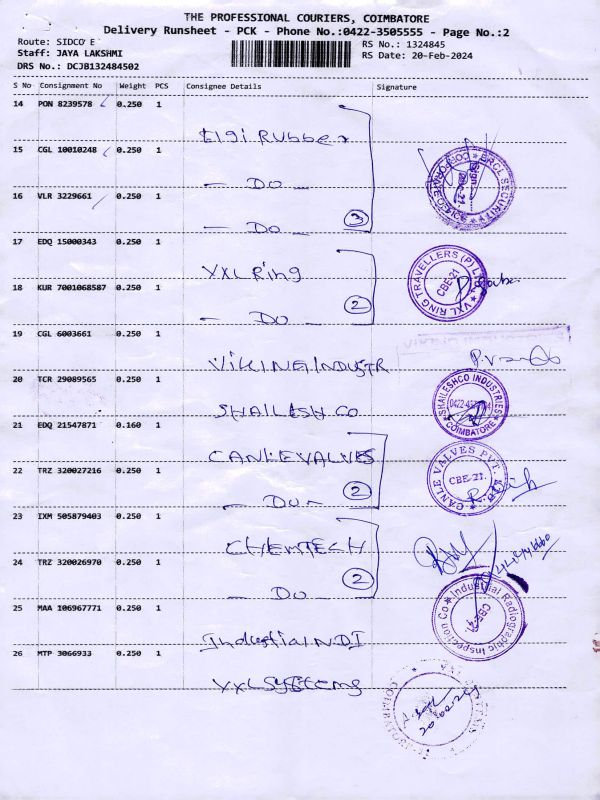 THE PROFESSIONAL COURIERS, COIMBATORE
Delivery Runsheet - PCK - Phone No.:0422-3505555 - Page No.:2
Route: SIDCO E
RS No.: 1324845
Staff: JAYA LAKSHMI
RS Date: 20-Feb-2024
DRS No.: DCJB132484502
S No Consignment No Weight PCS Consignee Details Signature
14 PON 8239578 0.250 1
Elgi Rubber
15 CGL 10010248 0.250 1
- Do -
16 VLR 3229661 0.250 1
- Do - 3
17 EDQ 15000343 0.250 1
VXL Ring
18 KUR 7001068587 0.250 1
- Do - 2
19 CGL 6003661 0.250 1
VIKING INDUSTR
20 TCR 29089565 0.250 1
SHAILESH CO
21 EDQ 21547871 0.160 1
CANLE VALVES
22 TRZ 320027216 0.250 1
- Do - 2
23 IXM 505879403 0.250 1
CHEMTECH
24 TRZ 320026970 0.250 1
- Do - 2
25 MAA 106967771 0.250 1
Industrial NDI
26 MTP 3066933 0.250 1
VXL Systems
BRCL SECURITY
VXL RING TRAVELLERS (P) L
CBE-21
SHAILESHCO INDUSTRIES
COIMBATORE
CANLE VALVES PVT.
CBE-21.
Industrial Radiographic Inspection Co